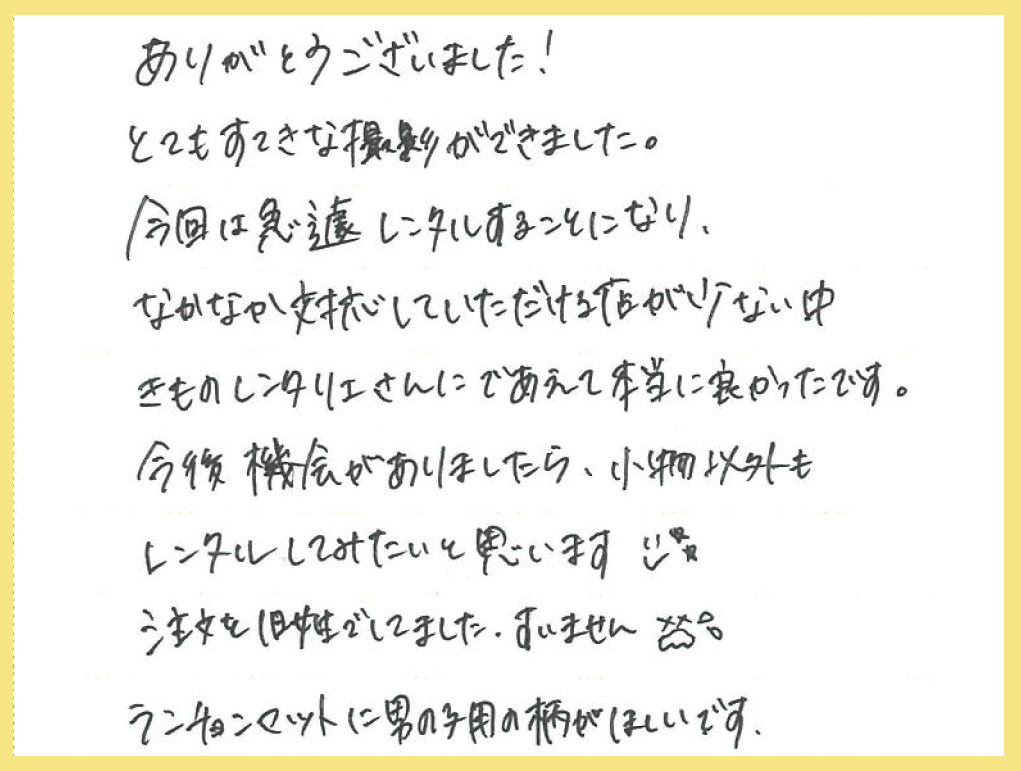 ありがとうございました！
とてもすてきな撮影ができました。
今回は急遽レンタルすることになり、
なかなか対応していただける店が少ない中
きものレンタリエさんにであえて本当に良かったです。
今後機会がありましたら、小物以外も
レンタルしてみたいと思います
注文を旧姓でしてました。すいません
ランチョンマットに男の子用の柄がほしいです。